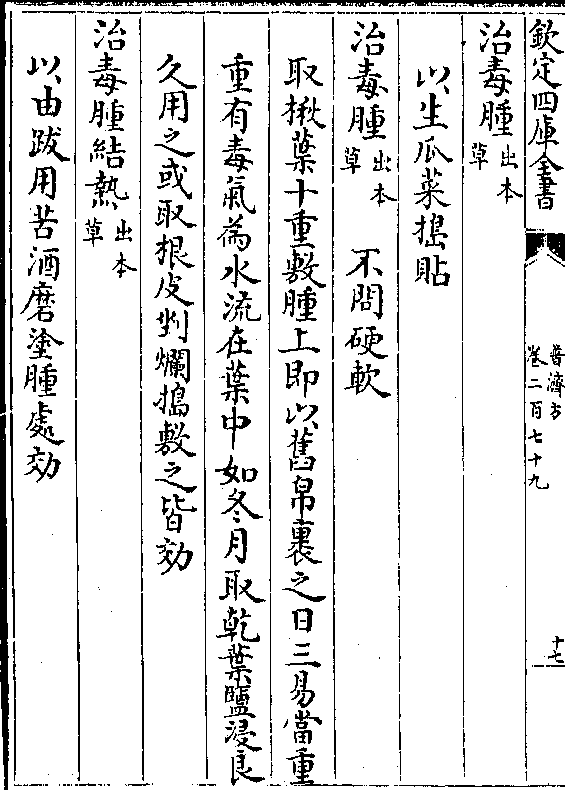 欽定四庫全書
普濟方
卷二百七十九
十七
治毒腫出本草
以生瓜菜搗貼
治毒腫出本草 不問硬軟
取楸葉十重敷腫上即以舊帛裹之日三易當重
重有毒氣為水流在葉中如冬月取乾葉鹽浸良
久用之或取根皮剉爛搗敷之皆効
治毒腫結熱出本草
以由跋用苦酒磨塗腫處効